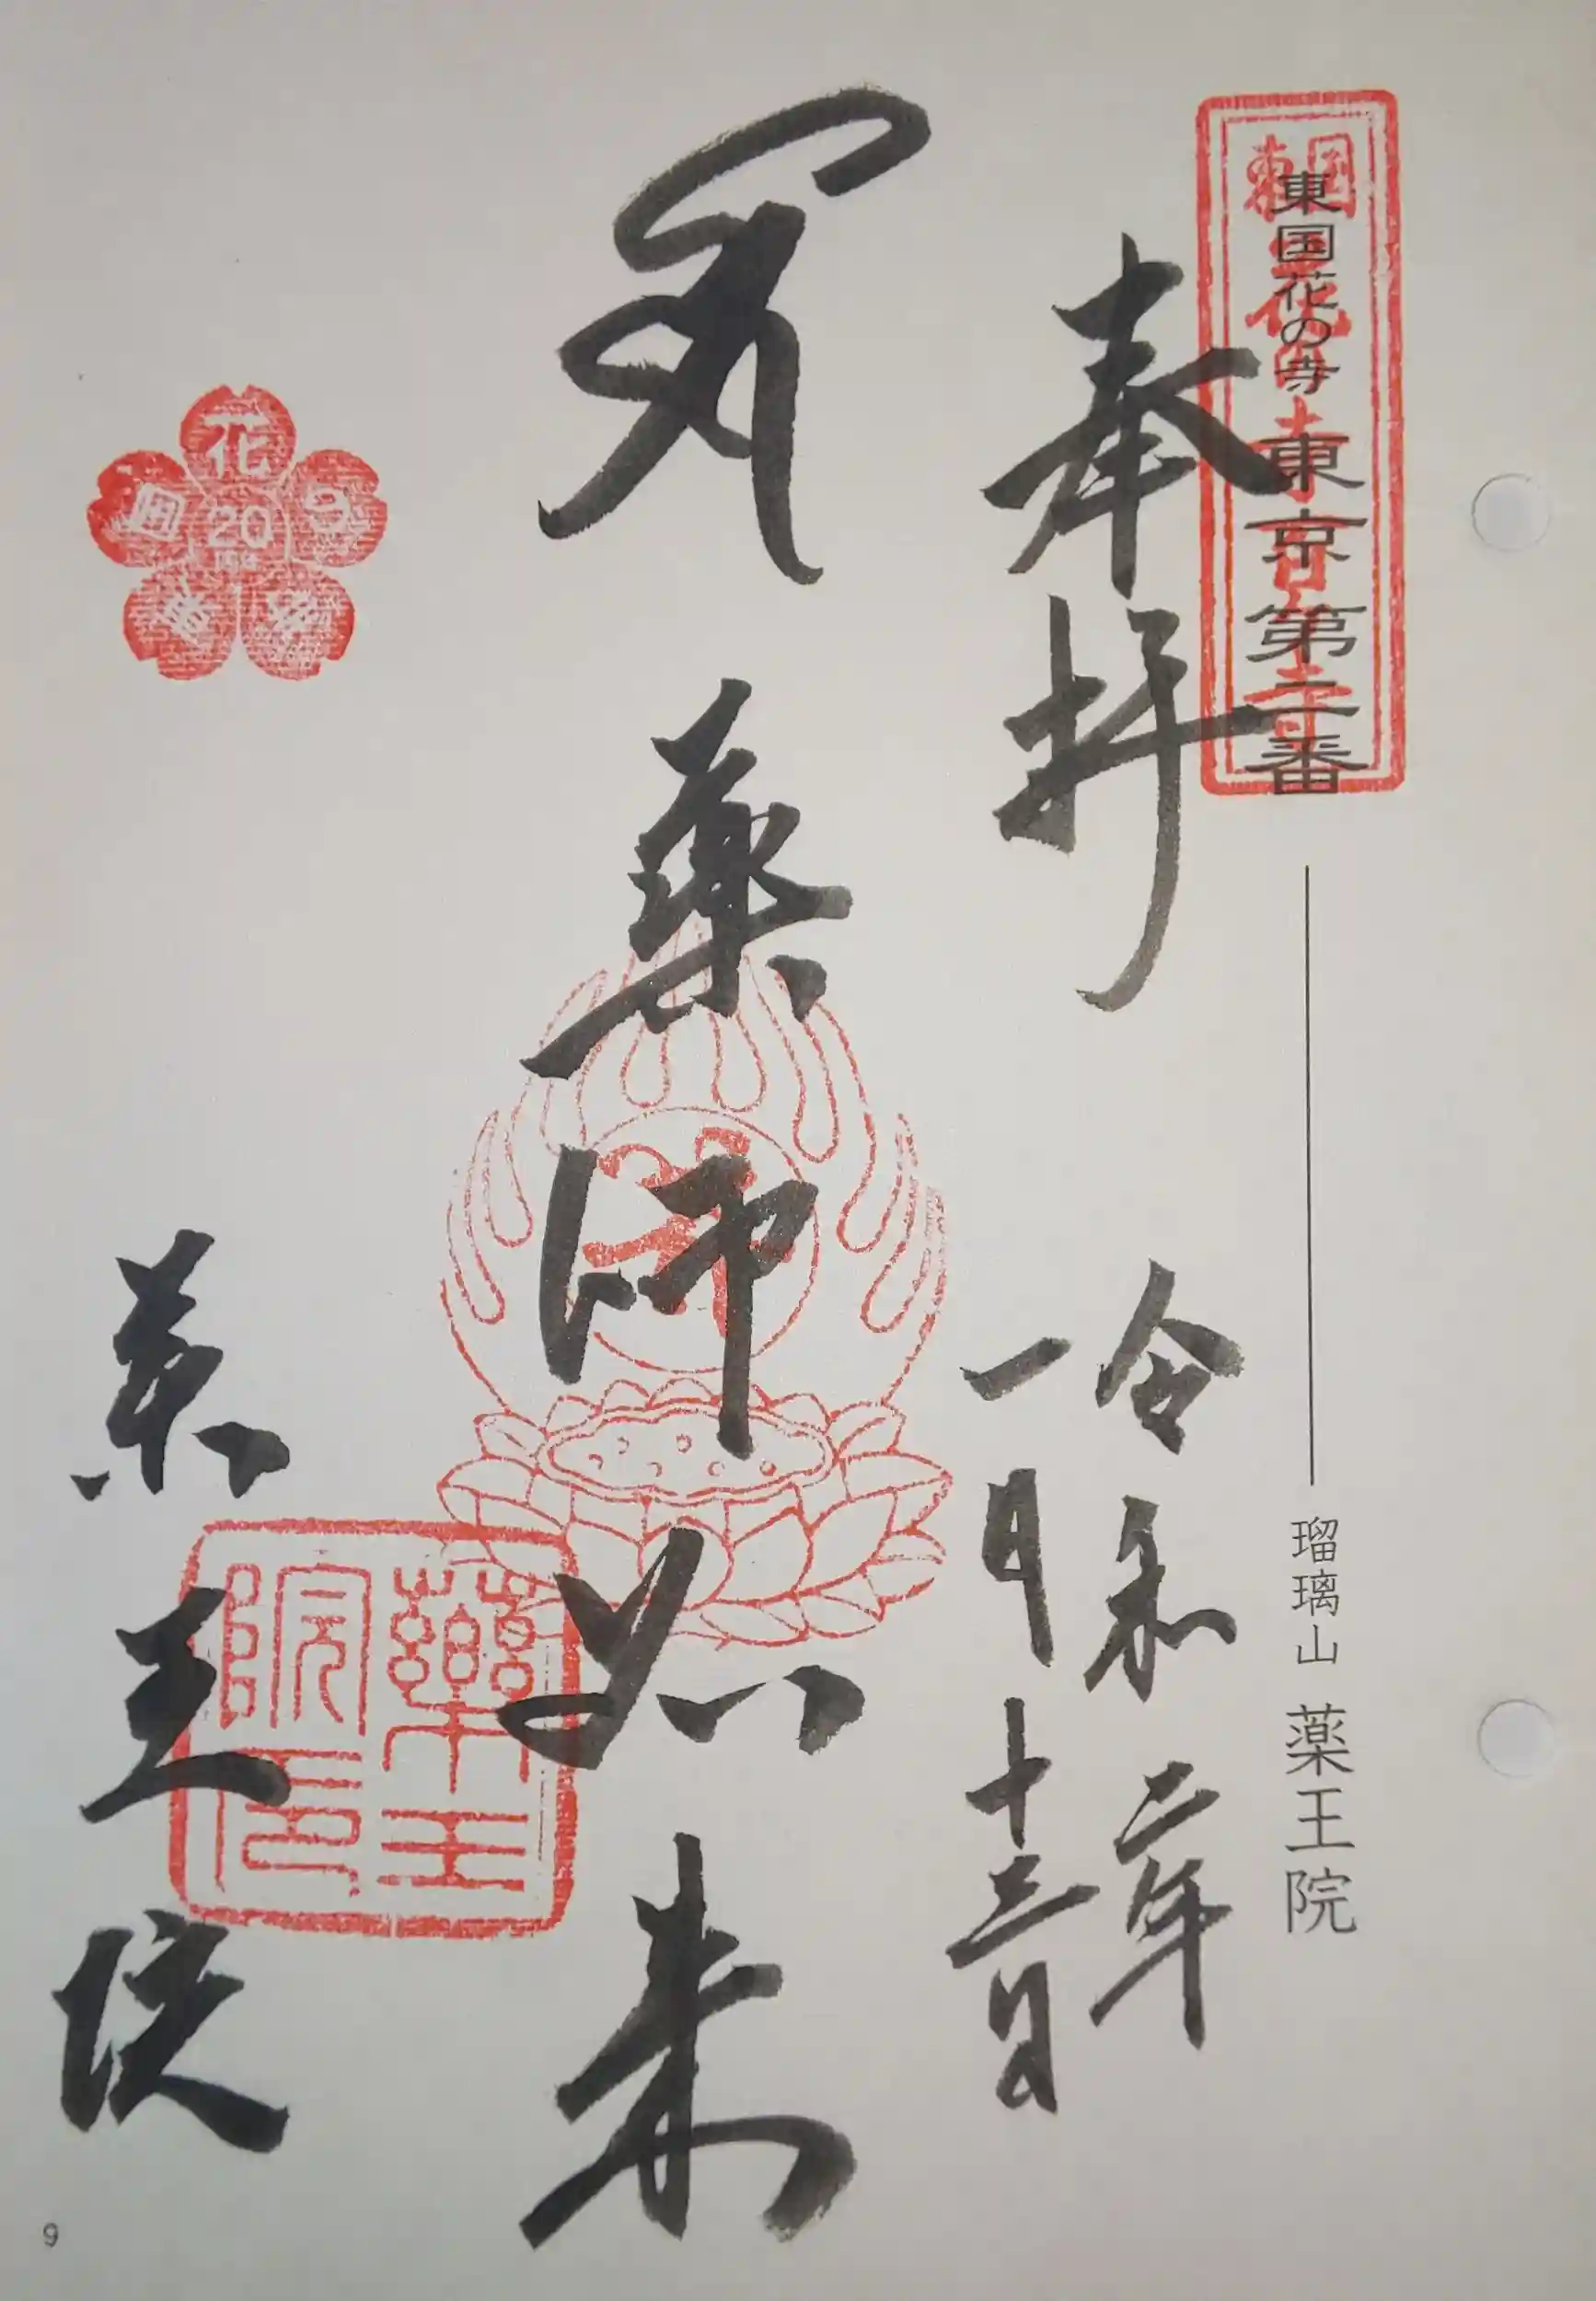 東国花の寺 東京第二番 瑠璃山 薬王院
東国花の寺百ヶ寺
奉拝 令和二年
一月十三日
薬師如来
薬王院
薬王院印
花の寺
20
9